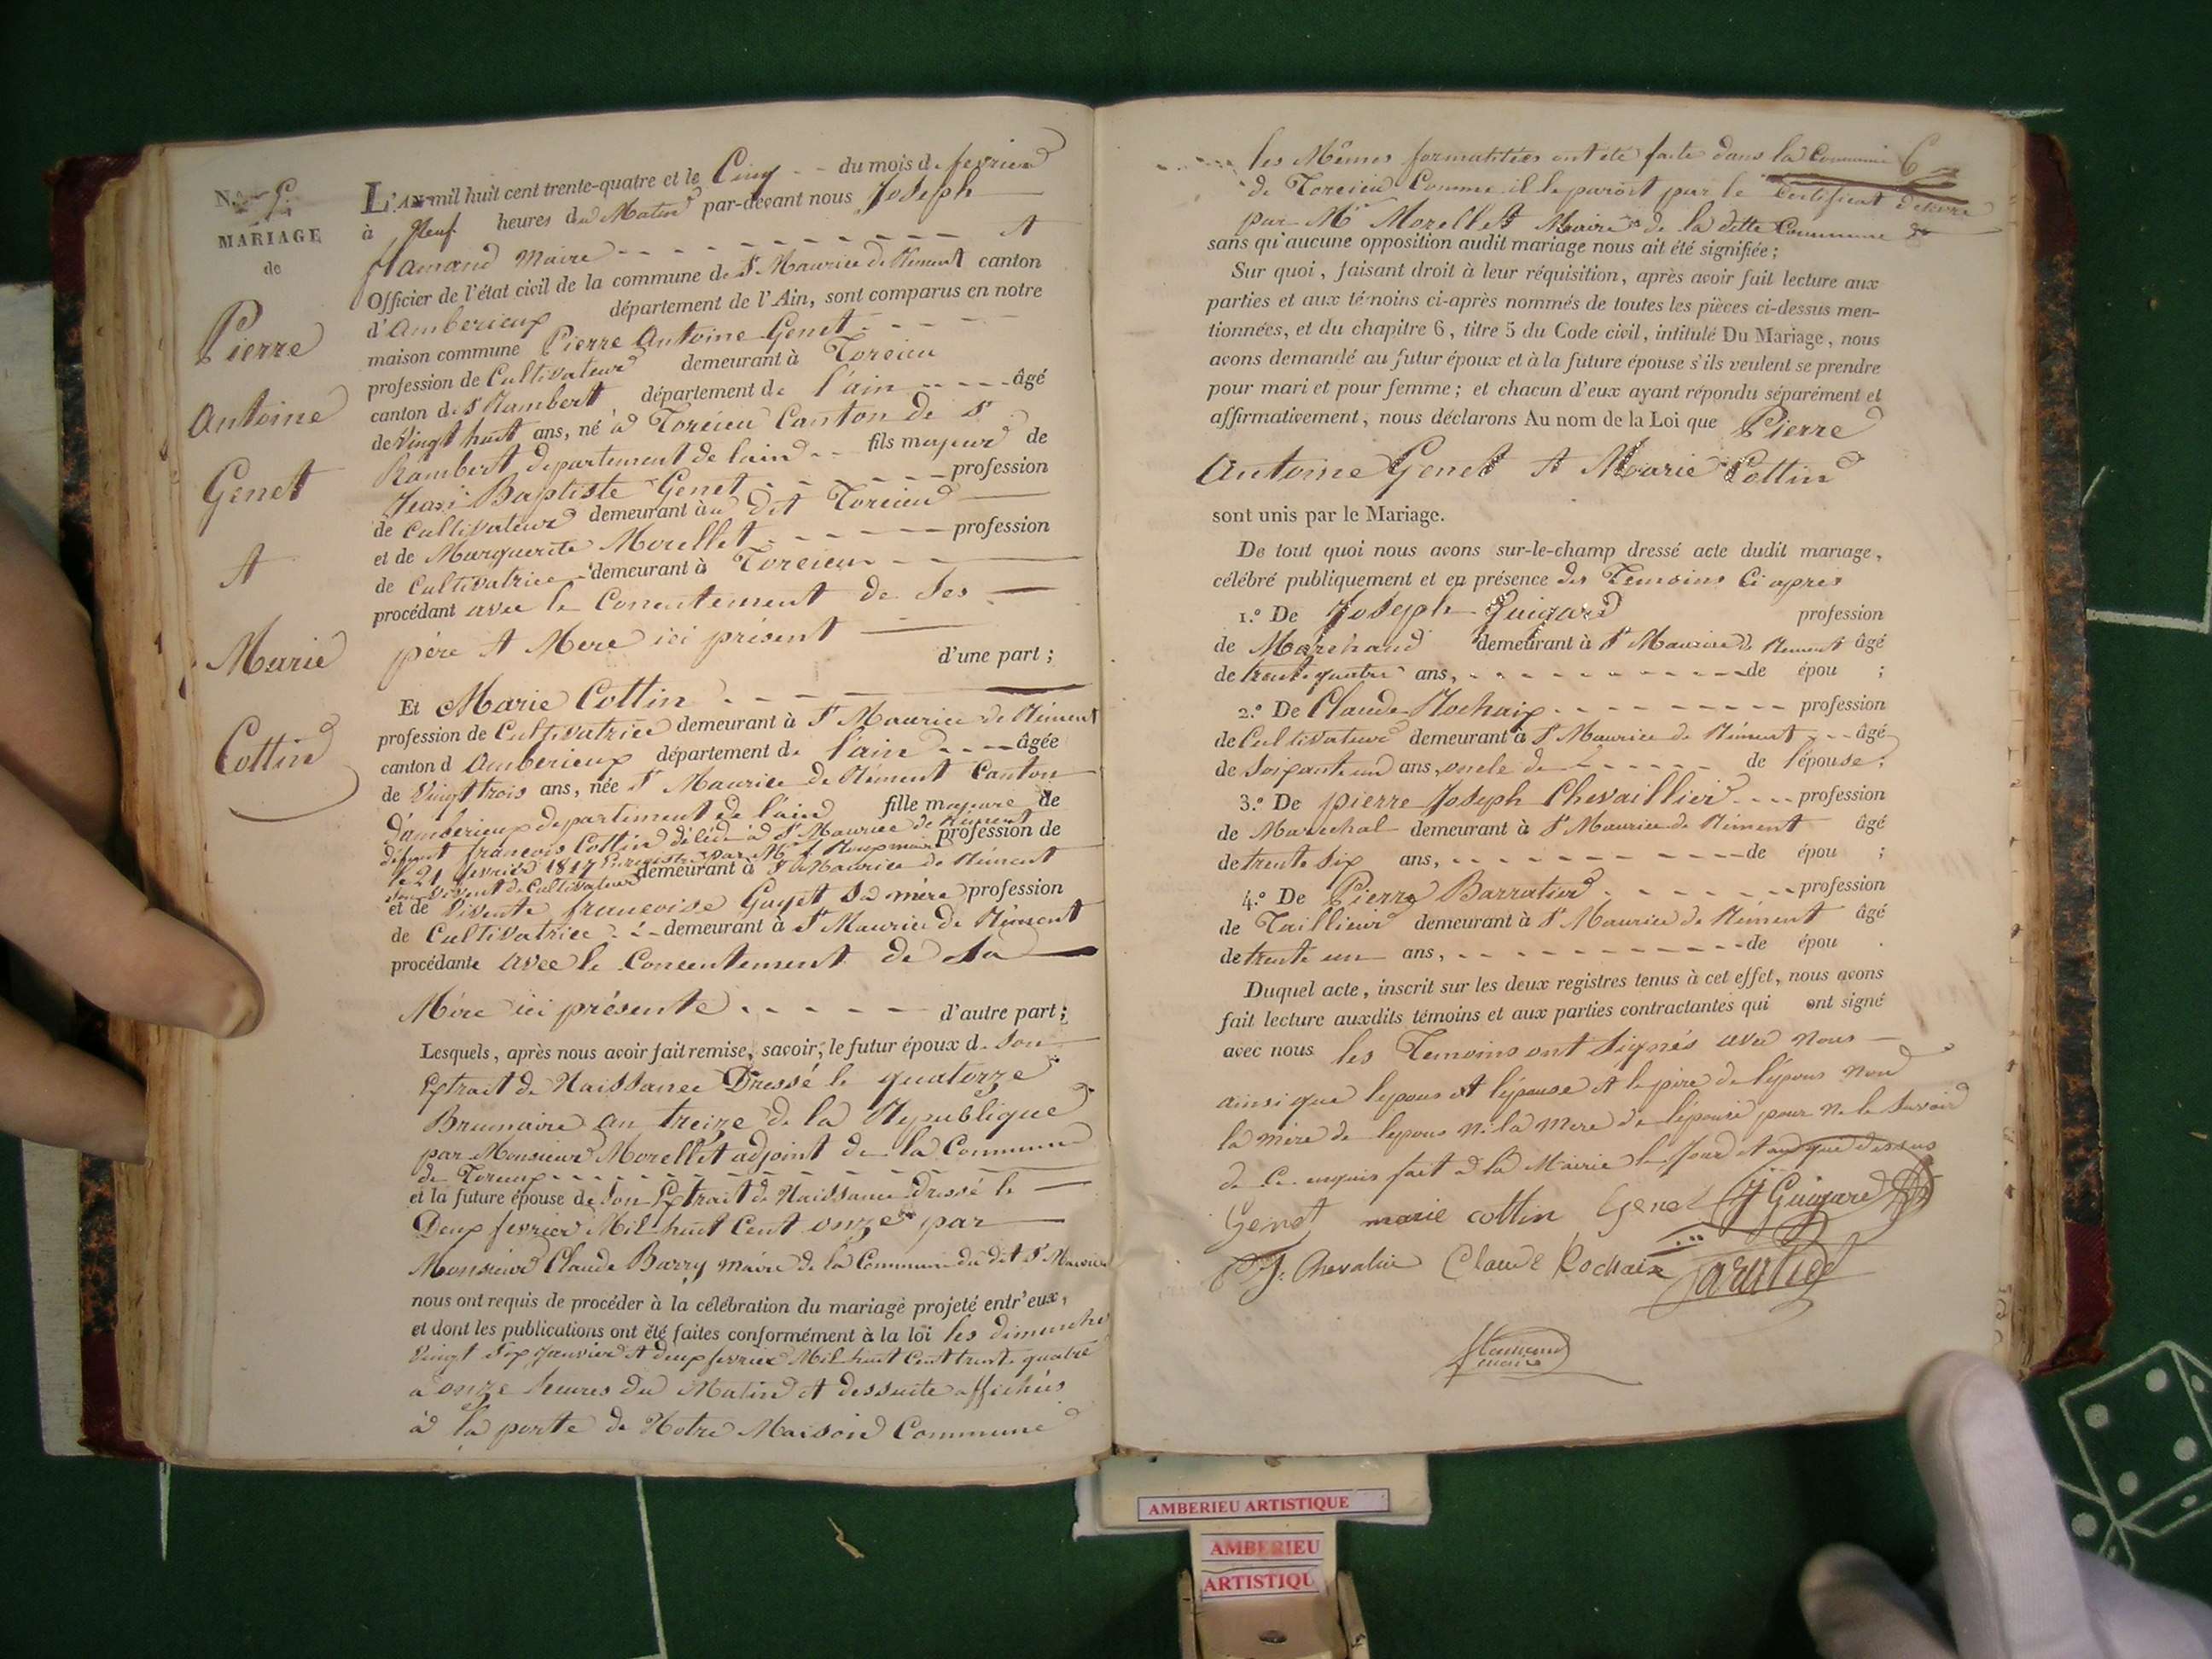 N.° 5.
MARIAGE
de
Pierre
Antoine
Genet
et
Marie
Cottin
L'AN mil huit cent trente-quatre et le Cinq du mois de fevrier
à Neuf heures du Matin par-devant nous Joseph
flamand maire et
Officier de l'état civil de la commune de St Maurice de Rément canton
d'amberieux département de l'Ain, sont comparus en notre
maison commune Pierre Antoine Genet
profession de Cultivateur demeurant à Torcieu
canton de St Rambert département de l'ain âgé
de Vingt huit ans, né à Torcieu Canton de St
Rambert departement de lain fils majeur de
Jean Baptiste Genet profession
de Cultivateur demeurant àu dit Torcieu
et de Marguerite Morellet profession
de Cultivatrice demeurant à Torcieu
procédant avec le Concentement de Ses
père et Mere ici présent
d'une part ;
Et Marie Cottin
profession de Cultivatrice demeurant à St Maurice de Rément
canton d amberieux département de l'ain âgée
de Vingt trois ans, née St Maurice de Rément Canton
d'amberieux departement de l'ain fille majeure de
défunt françois Cottin décédé à St Maurice de Rément profession de
le 21 fevrier 1817 Enregistré par Mr demeurant à St Maurice de Rément
son vivent de Cultivateur
et de Vivente francoise Guyet Sa mère profession
de Cultivatrice demeurant à St Maurice de Rément
procédante avec le Concentement de Sa
Mère ici présente d'autre part ;
Lesquels, après nous avoir fait remise, savoir, le futur époux d. Son
Extrait de Naissance Dressé le quatorze
Brumaire an treize de la Republique
par Monsieur Morellet adjoint de la Commune
de Torcieux
et la future épouse de Son Extrait de Naissance dressé le
Deux fevrier Mil huit Cent onze par
Monsieur Claude Barry maire de la Commune du dit St Maurice
nous ont requis de procéder à la célébration du mariage projeté entr'eux,
et dont les publications ont été faites conformément à la loi les dimenche
Vingt Six Janvier et deux fevrier Mil huit Cent trente quatre
a onze heures du Matin et dessuite affichés
à la porte de Notre Maison Commune
6
les Mêmes formalitées ont été faite dans la Commune
de Torcieu Comme il le paroit par le Certificat délivré
par Mr Morellet Maire de la ditte Commune
sans qu'aucune opposition audit mariage nous ait été signifiée ;
Sur quoi, faisant droit à leur réquisition, après avoir fait lecture aux
parties et aux témoins ci-après nommés de toutes les pièces ci-dessus men-
tionnées, et du chapitre 6, titre 5 du Code civil, intitulé Du Mariage, nous
avons demandé au futur époux et à la future épouse s'ils veulent se prendre
pour mari et pour femme ; et chacun d'eux ayant répondu séparément et
affirmativement, nous déclarons Au nom de la Loi que Pierre
Antoine Genet et Marie Cottin
sont unis par le Mariage.
De tout quoi nous avons sur-le-champ dressé acte dudit mariage,
célébré publiquement et en présence des Temoins Ci apres
1.° De Joseph Guigard profession
de Marchand demeurant à St Maurice de Rement âgé
de trente quatre ans, de épou ;
2.° De Claude Rochaix profession
de Cultivateur demeurant à St Maurice de Rément âgé
de Soixante un ans, oncle de de l'épouse ;
3.° De pierre Joseph Chevaillier profession
de Marechal demeurant à St Maurice de Rément âgé
de trente Six ans, de épou ;
4.° De Pierre Barratier profession
de Taillieur demeurant à St Maurice de Rément âgé
de trente un ans, de épou .
Duquel acte, inscrit sur les deux registres tenus à cet effet, nous avons
fait lecture auxdits témoins et aux parties contractantes qui ont signé
avec nous les Temoins ont Signés avec nous
ainsi que lepoux et lépouse et le père de lépoux non
la mère de lepoux ni la Mere de lépouse pour ne le Savoir
de Ce enquis fait a la Mairie le Jour et an que dessus
Genet marie cottin Genet J Guigard
P J. Chevalier Claude Rochaix Baratier
flamand
maire
AMBERIEU ARTISTIQUE
AMBERIEU
ARTISTIQU